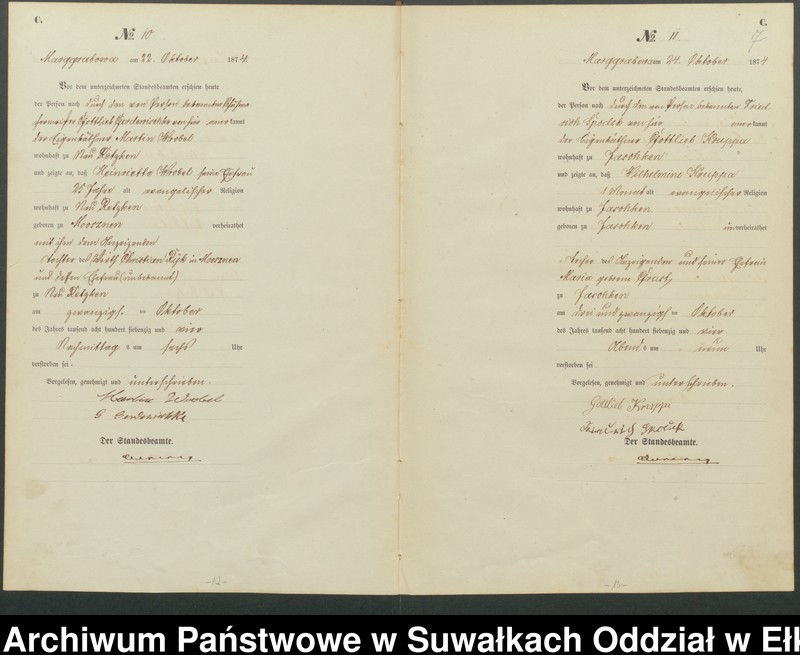 C.
№ 10
Marggrabowa am 22 Oktober 1874.
Vor dem unterzeichneten Standesbeamten erschien heute
der Person nach durch den von Person bekannten
Gottlieb von hier anerkannt
der Eigenkäthner Martin Wrobel
wohnhaft zu Neu Retzken
und zeigte an, daß Heinriette Wrobel seine Ehefrau
25 Jahre alt evangelischer Religion
wohnhaft zu Neu Retzken
geboren zu Moosznen verheirathet
mit ihm dem Anzeigenden
Tochter des Wirth Christian in Moosznen
und dessen Ehefrau (unbekannt)
zu Neu Retzken
am zwanzigst. ten Oktober
des Jahres tausend acht hundert siebenzig und vier
Nachmittag s um sechs Uhr
verstorben sei.
Vorgelesen, genehmigt und unterschrieben.
Martin Wrobel
G
Der Standesbeamte.
-12-
C.
7
№ 11
Marggrabowa am 24. Oktober 1874
Vor dem unterzeichneten Standesbeamten erschien heute,
der Person nach durch den von Person bekannten Fried
rich von hier anerkannt
der Eigenkäthner Gottlieb Kruppa
wohnhaft zu Jaschken
und zeigte an, daß Wilhelmine Kruppa
1 Monat alt evangelischer Religion
wohnhaft zu Jaschken
geboren zu Jaschken unverheirathet
Tochter des Anzeigenden und seiner Ehefrau
Maria geborne
zu Jaschken
am drei und zwanzigst ten Oktober
des Jahres tausend acht hundert siebenzig und vier
Abend s um neun Uhr
verstorben sei.
Vorgelesen, genehmigt und unterschrieben.
Gottlieb Kruppa
Friedrich
Der Standesbeamte.
-13-
Archiwum Państwowe w Suwałkach Oddział w Ełk